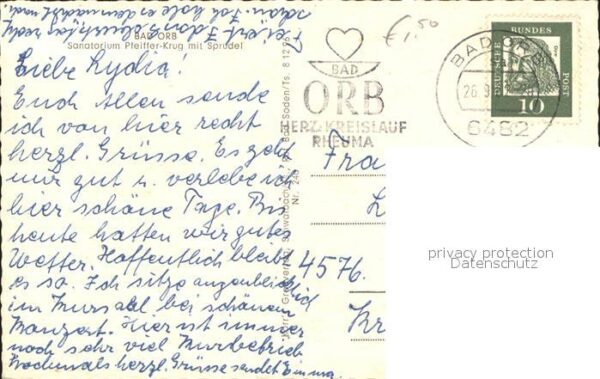 BAD ORB
Sanatorium Pfeiffer-Krug mit Sprudel
Liebe Lydia!
Euch Allen sende
ich von hier recht
herzl. Grüsse. Es geht
mir gut u. verlebe ich
hier schöne Tage. Bis
heute hatten wir gutes
Wetter. Hoffentlich bleibt
es so. Ich sitze augenblicklich
im Kursaal bei schönem
Konzert. Hier ist immer
noch sehr viel Kurbetrieb
Nochmals herzl. Grüsse sendet Emma.
€ 1,50
BAD
ORB
HERZ-KREISLAUF
RHEUMA
BAD ORB
26.9.
6482
DEUTSCHE BUNDESPOST
10
Fra
L
4576
Kr
privacy protection
Datenschutz